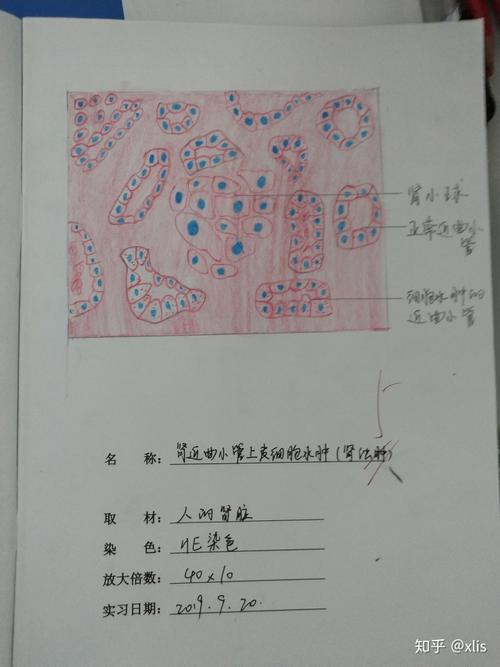 肾小球
正常近曲小
管
细胞水肿的
近曲小管
5
名 称: 肾近曲小管上皮细胞水肿(肾浊肿)
取 材: 人的肾脏
染 色: HE染色
放大倍数: 40×10
实习日期: 2019.9.20.
知乎 @xlis